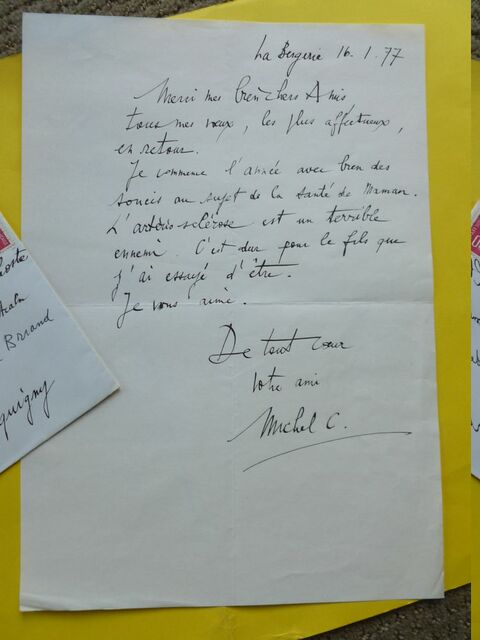 La Bergerie 16-1.77
Merci mes bien chers Amis
tous mes vœux, les plus affectueux,
en retour.
Je commence l'année avec bien des
soucis au sujet de la santé de Maman.
L'artério-sclérose est un terrible
ennemi. C'est dur pour le fils que
j'ai essayé d'être.
Je vous aime.
De tout cœur
votre ami
Michel C.
Briand